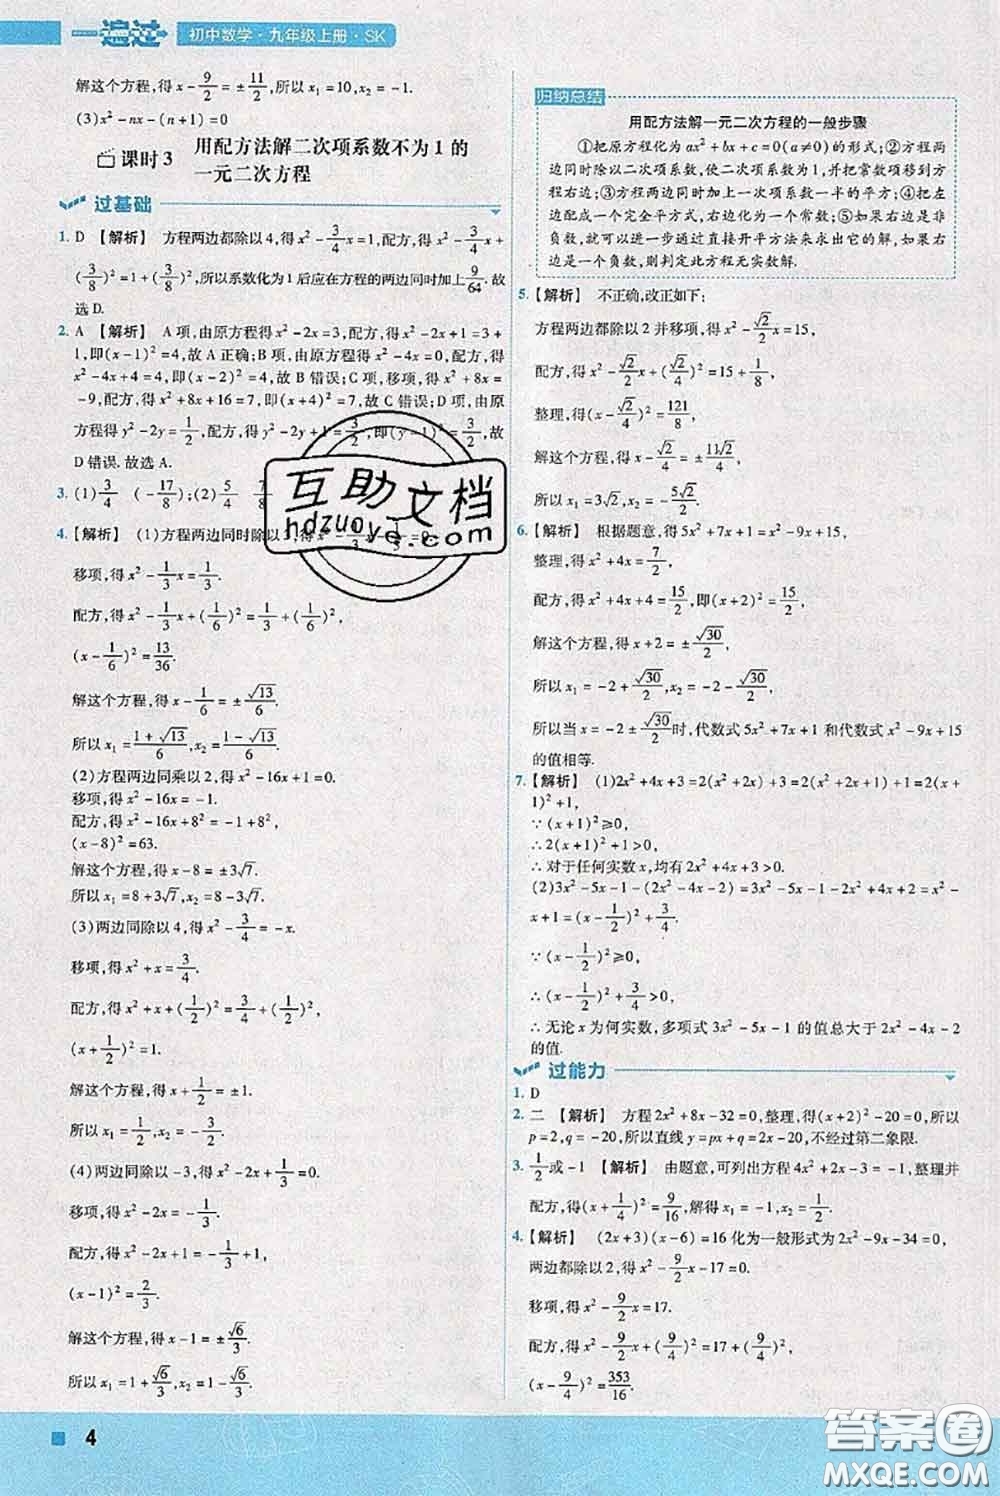 一遍过 初中数学·九年级上册·SK
解这个方程,得 x - 9/2 = ± 11/2,所以 x₁ = 10, x₂ = -1.
(3)x² - nx - (n + 1) = 0
课时3 用配方法解二次项系数不为1的
一元二次方程
过基础
1. D 【解析】 方程两边都除以4,得 x² - 3/4 x = 1,配方,得 x² - 3/4 x +
(3/8)² = 1 + (3/8)²,所以系数化为1后应在方程的两边同时加上 9/64. 故
选 D.
2. A 【解析】 A 项,由原方程得 x² - 2x = 3,配方,得 x² - 2x + 1 = 3 +
1,即(x - 1)² = 4,故 A 正确;B 项,由原方程得 x² - 4x = 0,配方,得
x² - 4x + 4 = 4,即(x - 2)² = 4,故 B 错误;C 项,移项,得 x² + 8x =
-9,配方,得 x² + 8x + 16 = 7,即(x + 4)² = 7,故 C 错误;D 项,由原
方程得 y² - 2y = 1/2,配方,得 y² - 2y + 1 = 3/2,即(y - 1)² = 3/2,故
D 错误. 故选 A.
3. (1)3/4 (-17/8);(2)5/4
4.【解析】 (1)方程两边同时除以3,得 x² - 1/3 x - 1/3 = 0.
移项,得 x² - 1/3 x = 1/3.
配方,得 x² - 1/3 x + (1/6)² = 1/3 + (1/6)²,
(x - 1/6)² = 13/36.
解这个方程,得 x - 1/6 = ± √13/6.
所以 x₁ = (1 + √13)/6, x₂ = (1 - √13)/6.
(2)方程两边同乘以2,得 x² - 16x + 1 = 0.
移项,得 x² - 16x = -1.
配方,得 x² - 16x + 8² = -1 + 8²,
(x - 8)² = 63.
解这个方程,得 x - 8 = ±3√7.
所以 x₁ = 8 + 3√7, x₂ = 8 - 3√7.
(3)两边同除以4,得 x² - 3/4 = -x.
移项,得 x² + x = 3/4.
配方,得 x² + x + (1/2)² = 3/4 + (1/2)²,
(x + 1/2)² = 1.
解这个方程,得 x + 1/2 = ±1.
所以 x₁ = 1/2, x₂ = -3/2.
(4)两边同除以 -3,得 x² - 2x + 1/3 = 0.
移项,得 x² - 2x = -1/3.
配方,得 x² - 2x + 1 = -1/3 + 1,
(x - 1)² = 2/3.
解这个方程,得 x - 1 = ± √6/3.
所以 x₁ = 1 + √6/3, x₂ = 1 - √6/3.
归纳总结
用配方法解一元二次方程的一般步骤
①把原方程化为 ax² + bx + c = 0(a ≠ 0)的形式;②方程两
边同时除以二次项系数,使二次项系数为1,并把常数项移到
方程右边;③方程两边同时加上一次项系数一半的平方;④左
边配成一个完全平方式,右边化为一个常数;⑤如果右边是非
负数,就可以进一步通过直接开平方法来求出它的解,如果右
边是一个负数,则判定此方程无实数解.
5.【解析】 不正确,改正如下:
方程两边都除以2并移项,得 x² - √2/2 x = 15,
配方,得 x² - √2/2 x + (√2/4)² = 15 + 1/8,
整理,得(x - √2/4)² = 121/8,
解这个方程,得 x - √2/4 = ± 11√2/4,
所以 x₁ = 3√2, x₂ = -5√2/2.
6.【解析】 根据题意,得 5x² + 7x + 1 = x² - 9x + 15,
整理,得 x² + 4x = 7/2,
配方,得 x² + 4x + 4 = 15/2,即(x + 2)² = 15/2,
解这个方程,得 x + 2 = ± √30/2,
所以 x₁ = -2 + √30/2, x₂ = -2 - √30/2,
所以当 x = -2 ± √30/2 时,代数式 5x² + 7x + 1 和代数式 x² - 9x + 15
的值相等.
7.【解析】 (1)2x² + 4x + 3 = 2(x² + 2x) + 3 = 2(x² + 2x + 1) + 1 = 2(x +
1)² + 1,
∵(x + 1)² ≥ 0,
∴2(x + 1)² + 1 > 0,
∴对于任何实数 x,均有 2x² + 4x + 3 > 0.
(2)3x² - 5x - 1 - (2x² - 4x - 2) = 3x² - 5x - 1 - 2x² + 4x + 2 = x² -
x + 1 = (x - 1/2)² + 3/4.
∵(x - 1/2)² ≥ 0,
∴(x - 1/2)² + 3/4 > 0,
∴无论 x 为何实数,多项式 3x² - 5x - 1 的值总大于 2x² - 4x - 2
的值.
过能力
1. D
2. 二 【解析】 方程 2x² + 8x - 32 = 0,整理,得(x + 2)² - 20 = 0,所以
p = 2, q = -20,所以直线 y = px + q = 2x - 20,不经过第二象限.
3. 1/2 或 -1 【解析】 由题意,可列出方程 4x² + 2x - 3 = -1,整理并
配方,得(x + 1/4)² = 9/16,解得 x₁ = -1, x₂ = 1/2.
4.【解析】 (2x + 3)(x - 6) = 16 化为一般形式为 2x² - 9x - 34 = 0,
两边都除以2,得 x² - 9/2 x - 17 = 0.
移项,得 x² - 9/2 x = 17.
配方,得 x² - 9/2 x + (9/4)² = 17 + (9/4)²,
(x - 9/4)² = 353/16.
互助文档
hdzuoye.com
4
答案圈
MXQE.COM